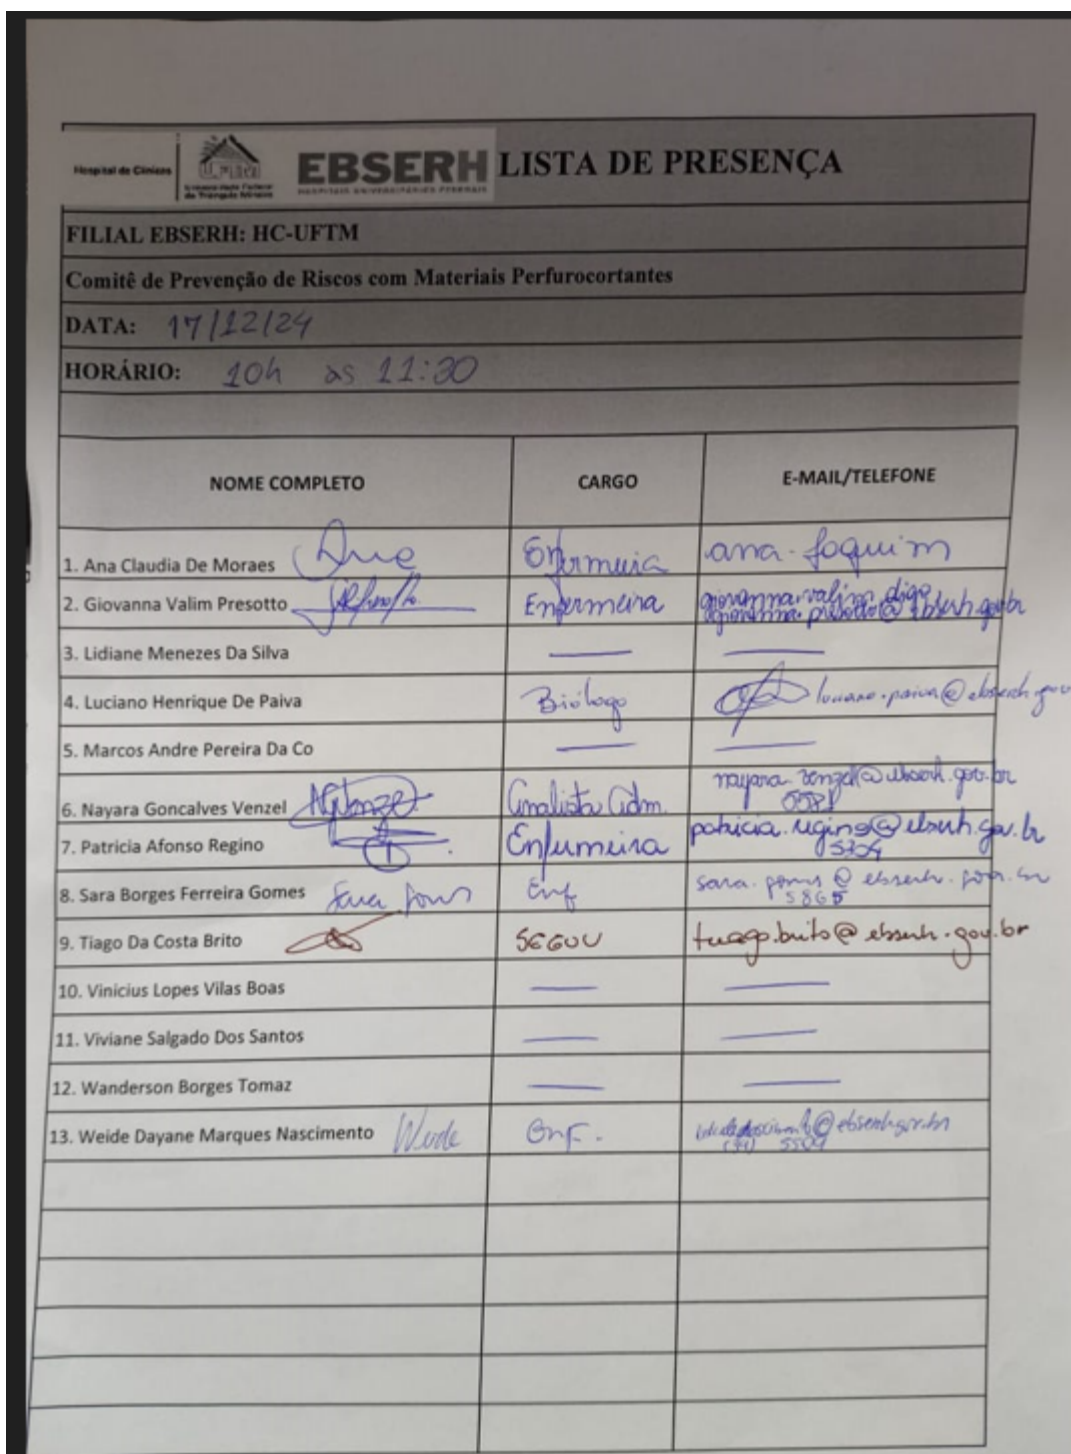 Hospital de Clínicas
UFTM
Universidade Federal
do Triângulo Mineiro
EBSERH
HOSPITAIS UNIVERSITÁRIOS FEDERAIS
LISTA DE PRESENÇA
FILIAL EBSERH: HC-UFTM
Comitê de Prevenção de Riscos com Materiais Perfurocortantes
DATA: 17/12/24
HORÁRIO: 10h às 11:30
NOME COMPLETO CARGO E-MAIL/TELEFONE
1. Ana Claudia De Moraes Ana Enfermeira ana.joquim
2. Giovanna Valim Presotto Enfermeira giovanna.valim digo
giovanna.presotto@ebserh.gov.br
3. Lidiane Menezes Da Silva
4. Luciano Henrique De Paiva Biólogo luciano.paiva@ebserh.gov
5. Marcos Andre Pereira Da Co
6. Nayara Goncalves Venzel Analista Adm. nayara.venzel@ebserh.gov.br
7. Patricia Afonso Regino Enfermeira patricia.regino@ebserh.gov.br
5304
8. Sara Borges Ferreira Gomes Sara Gomes Enf sara.gomes@ebserh.gov.br
5865
9. Tiago Da Costa Brito tiago.brito@ebserh.gov.br
10. Vinicius Lopes Vilas Boas
11. Viviane Salgado Dos Santos
12. Wanderson Borges Tomaz
13. Weide Dayane Marques Nascimento Weide Enf. @ebserh.gov.br